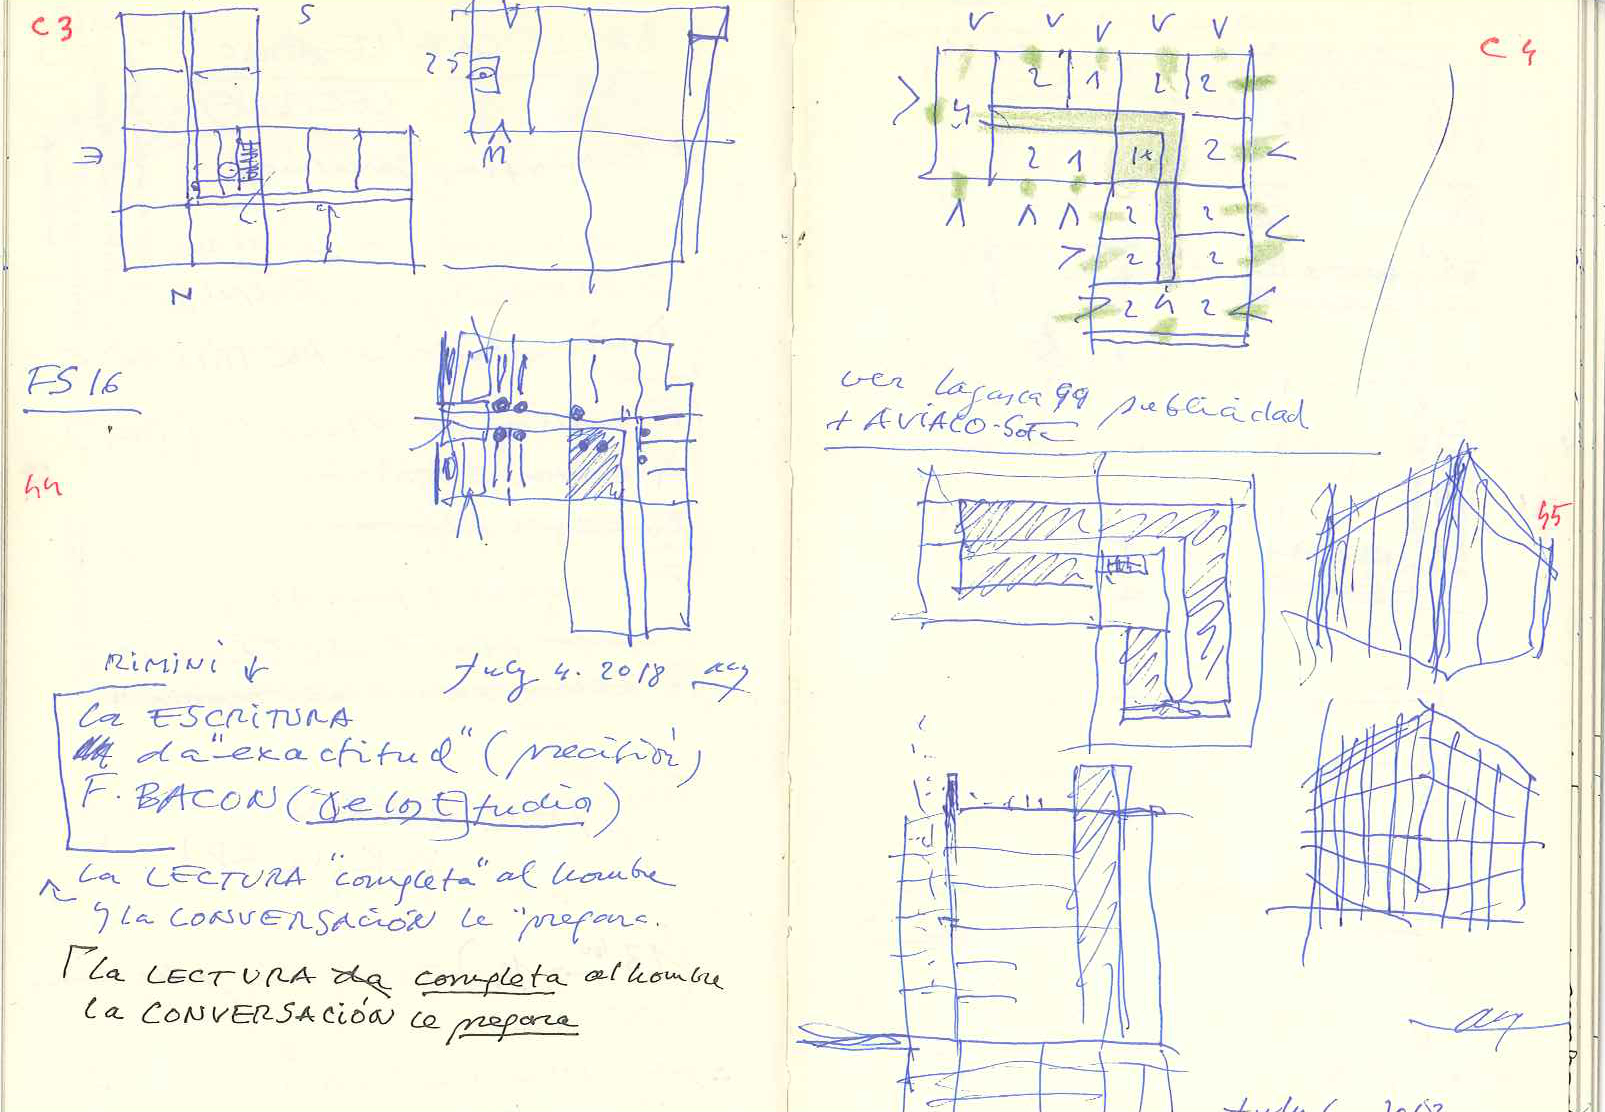 C3
S
25
M
N
FS 16
44
RIMINI ↓
July 4. 2018
La ESCRITURA
da "exactitud" (precisión)
F. BACON (De los Estudios)
La LECTURA "completa" al hombre
y la CONVERSACIÓN le "prepara.
La LECTURA da completa al hombre
la CONVERSACIÓN le prepara
C4
2 1 2 2
4
2 1 1x 2
2 2
2 2
2 4 2
ver Lagasca 99 publicidad
+ AVIACO-Sota
45